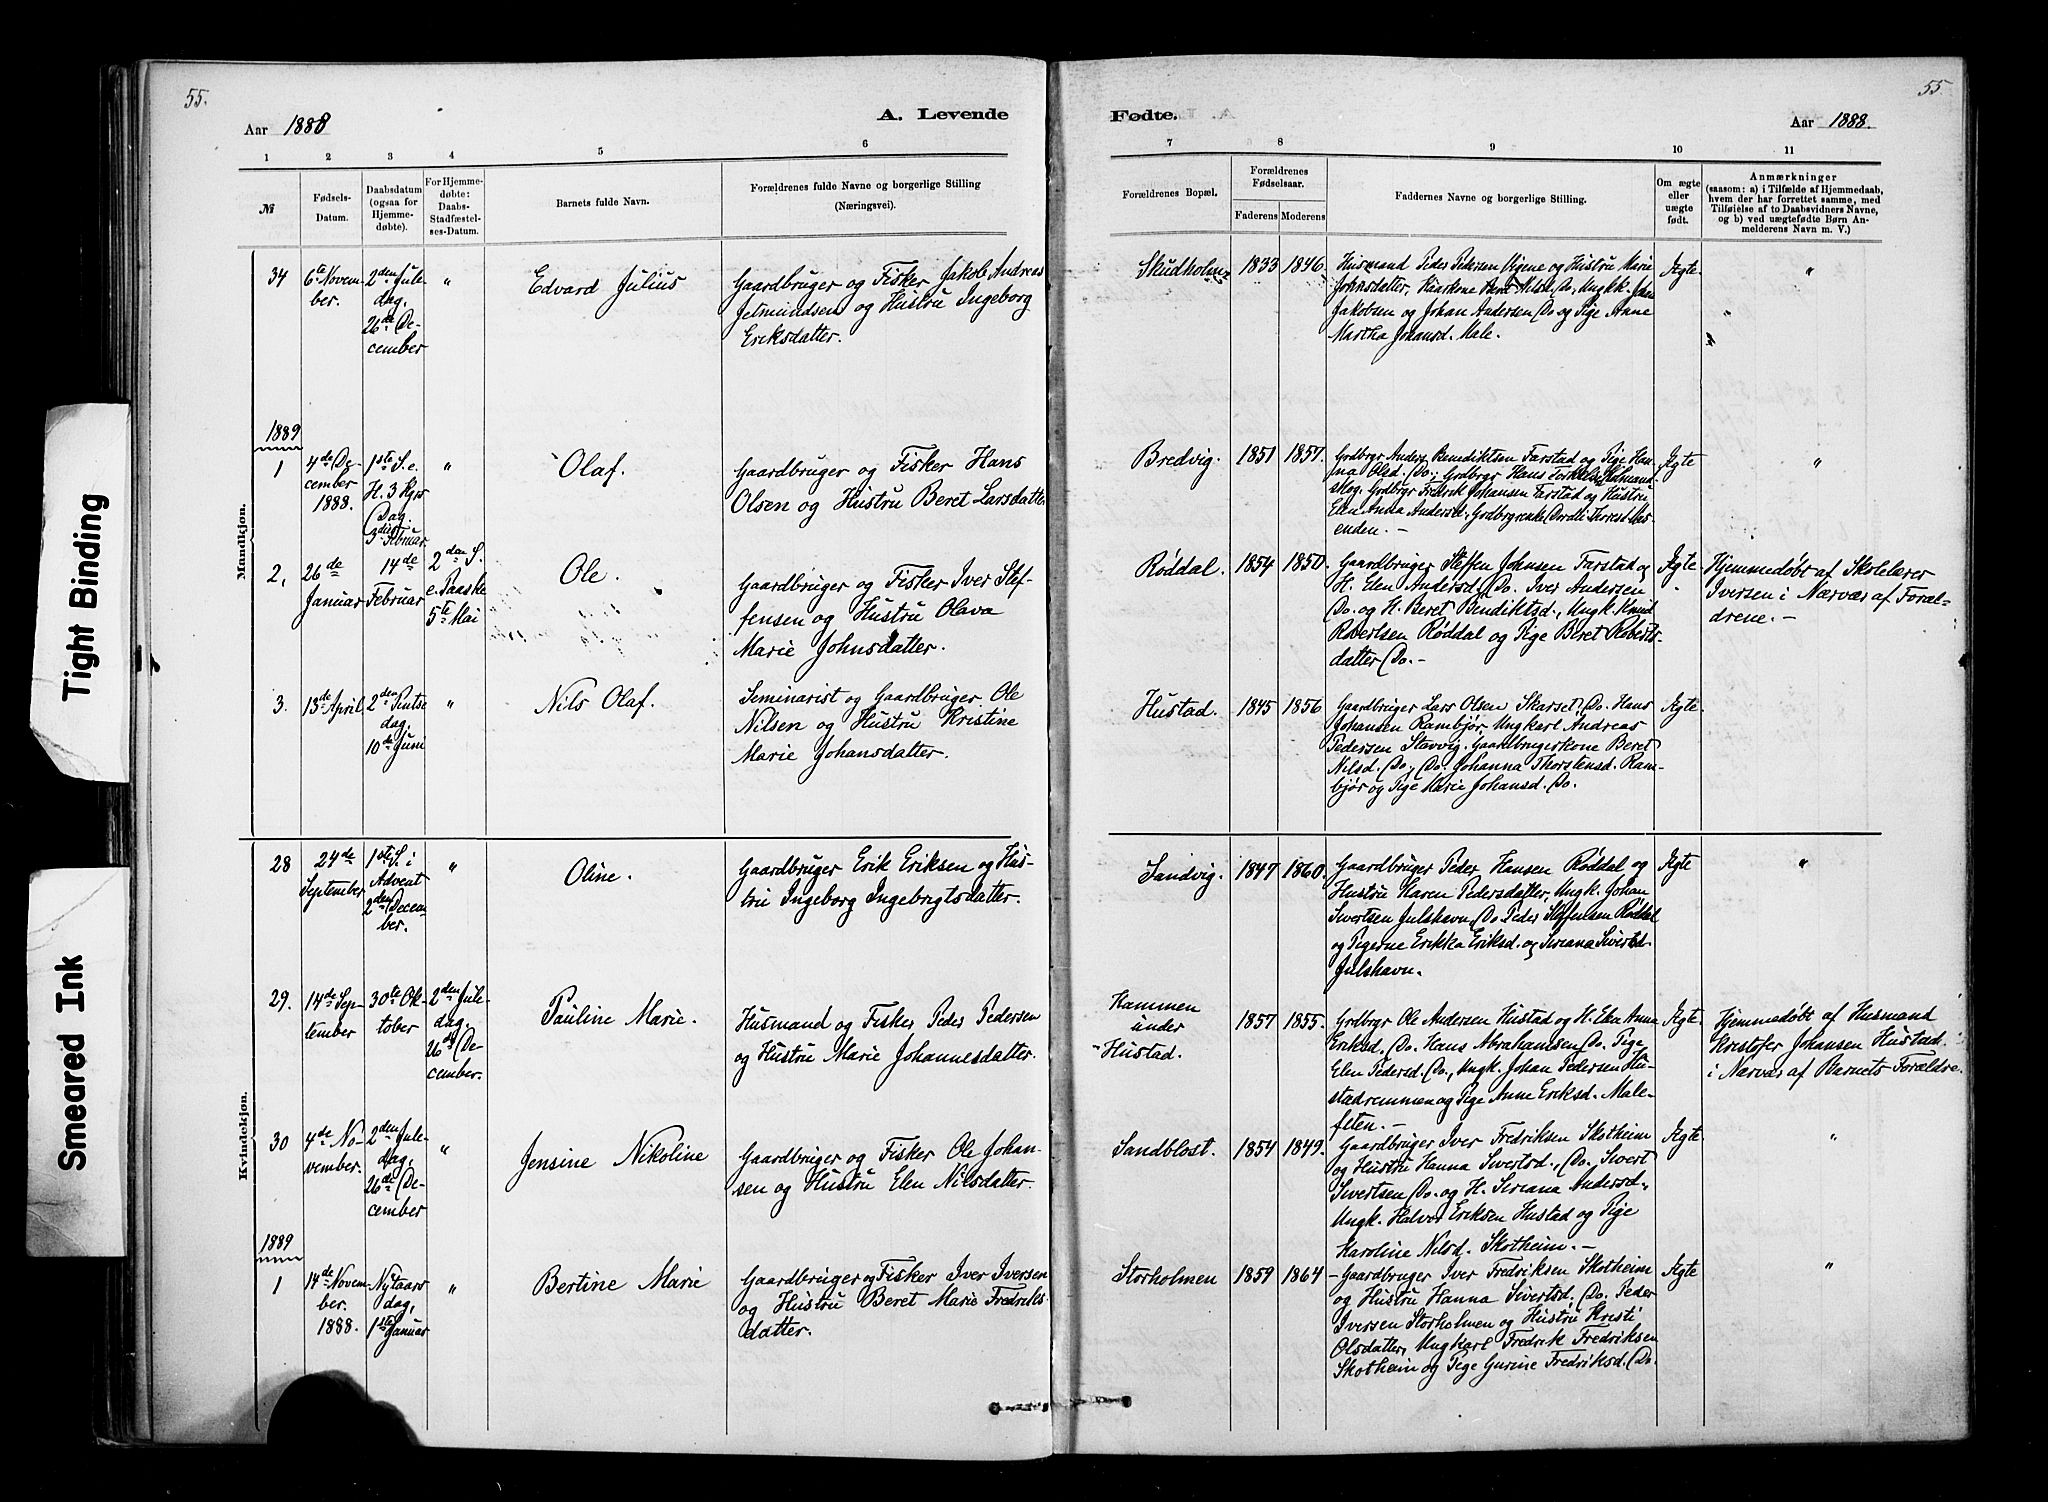 55.
55
Aar 1888
A. Levende
Fødte.
Aar 1888.
1 2 3 4 5 6 7 8 9 10 11
№
Fødsels-
Datum.
Daabsdatum
(ogsaa for
Hjemme-
døbte).
For Hjemme-
døbte:
Daabs-
Stadfæstel-
ses-Datum.
Barnets fulde Navn.
Forældrenes fulde Navne og borgerlige Stilling
(Næringsvei).
Forældrenes Bopæl.
Forældrenes
Fødselsaar.
Faderens Moderens
Faddernes Navne og borgerlige Stilling.
Om ægte
eller
uægte
født.
Anmærkninger
(saasom: a) i Tilfælde af Hjemmedaab,
hvem der har forrettet samme, med
Tilføielse af to Daabsvidners Navne,
og b) ved uægtefødte Børn An-
melderens Navn m. V.)
Mandkjøn.
34
6te Novem-
ber.
2den Jule-
dag,
26de De-
cember
"
Edvard Julius
Gaardbruger og Fisker Jakob Andreas
Jetmundsen og Hustru Ingeborg
Eriksdatter.
Skudholm
1833 1846.
Husmand Peder Pedersen Vigene og Hustru Marie
Johnsdatter,
Jakobsen og Johan Andersen Do og Pige Anne
Martha Johansd. Male.
Ægte
"
"
1889
1
4de De-
cember
1888.
1ste S. e.
H. 3 Kgrs
Dag.
3die Februar
"
Olaf.
Gaardbruger og Fisker Hans
Olsen og Hustru Beret Larsdatter
Bredvig.
1851 1857.
Grdbrgr Anders Benediktsen Farstad og Pige Han-
na Olsd. Do; Grdbrgr Hans
skog. Grdbrgr Fredrik Johansen Farstad og Hustru
Elen Anna Andersd.
enden. -
Ægte
"
2,
26de
Januar
14de
Februar
2den S.
e. Paaske
5te Mai
Ole.
Gaardbruger og Fisker Iver Stef-
fensen og Hustru Olava
Marie Johnsdatter.
Røddal.
1854 1850.
Gaardbruger Steffen Johnsen Farstad og
H. Elen Andersd, Do. Iver Andersen
Do. og H. Beret Bendiktsd., Ungk. Knud
Robertsen Røddal og Pige Beret Roberts-
datter Do. -
Ægte
Hjemmedøbt af Skolelærer
Iversen i Nærvær af Foræl-
drene. -
3.
13de April.
2den Pintse
dag,
10de Juni
"
Nils Olaf.
Seminarist og Gaardbruger Ole
Nilsen og Hustru Kristine
Marie Johansdatter.
Hustad.
1845 1856
Gaardbruger Lars Olsen Skarset, Do. Hans
Johansen Rambjør, Ungkarl Andreas
Pedersen Stavvig. Gaardbrugerkone Beret
Nilsd. Do, Do. Johanna Thorstensd. Ram-
bjør og Pige Marie Johansd. Do.
Ægte.
Kvindekjøn.
28
24de
September
1ste S. i
Advent
2den Decem-
ber.
"
Oline.
Gaardbruger Erik Eriksen og Hus-
tru Ingeborg Ingebrigtsdatter.
Sandvig.
1847 1860.
Gaardbruger Peder Hansen Røddal og
Hustru Karen Pedersdatter, Ungk. Johan
Sivertsen Julshavn, Do. Peder Steffensen Røddal
og Pigerne Erikka Eriksd. og Seriana Sivertsd.
Julshavn.
Ægte
"
29.
14de Sep-
tember
30te Ok-
tober
2den Jule-
dag,
26de De-
cember.
Pauline Marie.
Husmand og Fisker Peder Pedersen
og Hustru Marie Johannesdatter.
Hammen
under
Hustad.
1857 1855.
Grdbrgr Ole Andersen Hustad og H. Elen Anna
Eriksd. Do. Hans Abrahamsen Do. Pige
Elen Pedersd. Do., Ungk. Johan Pedersen Hu-
stadremmen og Pige Anne Eriksd. Male-
feten. -
Ægte.
Hjemmedøbt af Husmand
Kristofer Johansen Hustad
i Nærvær af Barnets Forældre.
30
4de No-
vember.
2den Jule-
dag,
26de De-
cember
"
Jensine Nikoline
Gaardbruger og Fisker Ole Johan-
sen og Hustru Elen Nilsdatter.
Sandblost.
1854 1849.
Gaardbruger Iver Fredriksen Skotheim
og Hustru Hanna Sivertsd., Do. Sivert
Sivertsen Do. og H. Seriana Andersd.,
Ungk. Halvor Eriksen Hustad og Pige
Karoline Nilsd. Skotheim. -
Ægte
"
1889
1
14de Novem-
ber.
1888.
Nytaars
dag,
1ste Januar
"
Bertine Marie
Gaardbruger og Fisker Iver Iversen
og Hustru Beret Marie Fredriks-
datter.
Storholmen
1859 1864
- Gaardbruger Iver Fredriksen Skotheim
og Hustru Hanna Sivertsd, Do. Peder
Iversen Storholmen og Hustru Kristi
Olsdatter, Ungkarl Fredrik Fredriksen
Skotheim og Pige Gurine Fredriksd. Do.
Ægte
"
Tight Binding
Smeared Ink